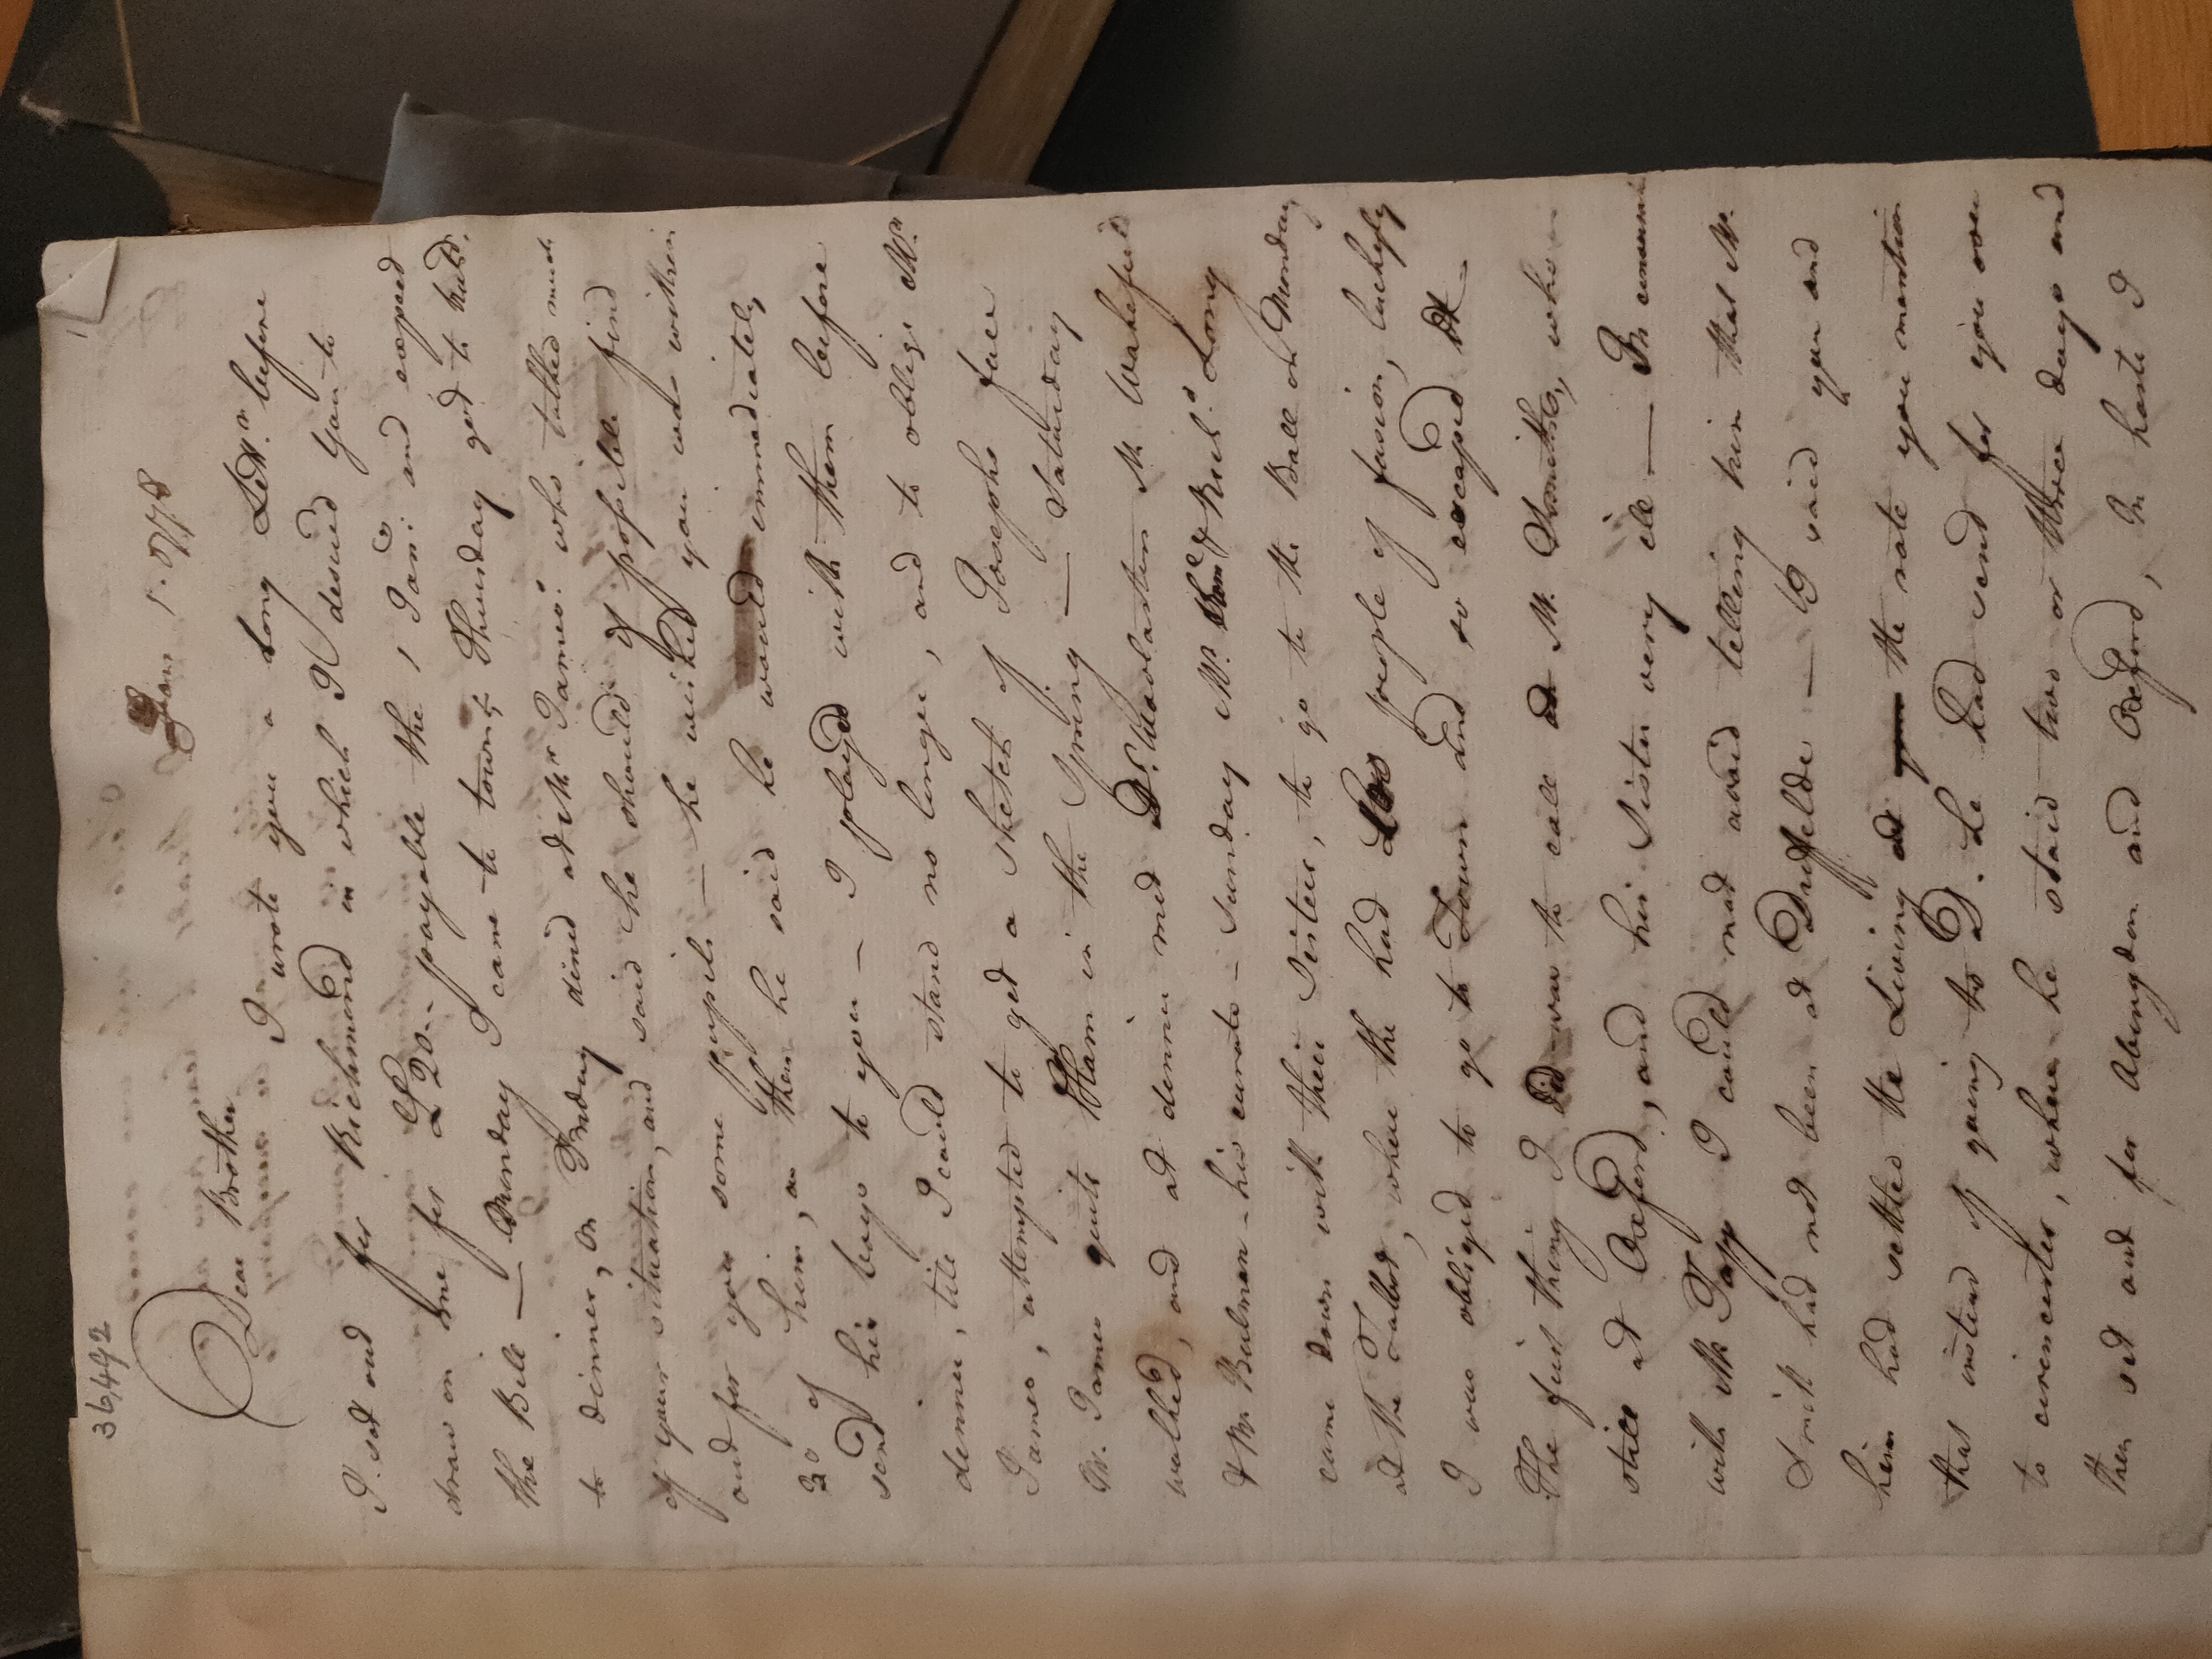 36,492
1
Jan 1. 1778
Dear Brother
I wrote you a long Let.r before
I set out for Richmond in which I desired you to
draw on me for £20.- payable the 1 Jan: and except
the Bill — Monday I came to town; Thursday got to
to dinner, on Friday dined at Mr James: who talked much
of your situation, and said he should if possible find
out for you some pupils — he wished you was within
20 of him, as then he said he would immediately
send his boys to you — I played with them before
dinner, till I could stand no longer, and to oblige Mrs
James, attempted to get a sketch of Josephs face
Mr. James quits Ham in the Spring — Saturday
walked, and at dinner met Dr. Wollaston Mr Wakefield
& Mr Bulmer - his curate - Sunday Mr. & Long
came down with their Sisters, to go to the Ball on Monday
at the Talbot, where the had people of fasion, luckyly
I was obliged to go to Town and so escaped it —
The first thing I did was to call at Mr. Smiths, who
still at Oxford, and his Sister very ill — In
with Mr Tapp I could not avoid telling him that Mr.
Smith had not been at — B said you and
him had settled the Living at the rate you mention
that instead of going to D. he had send for you over
to cirencester, where he staid two or three days and
then set out for Abingdon and Oxford, In haste I